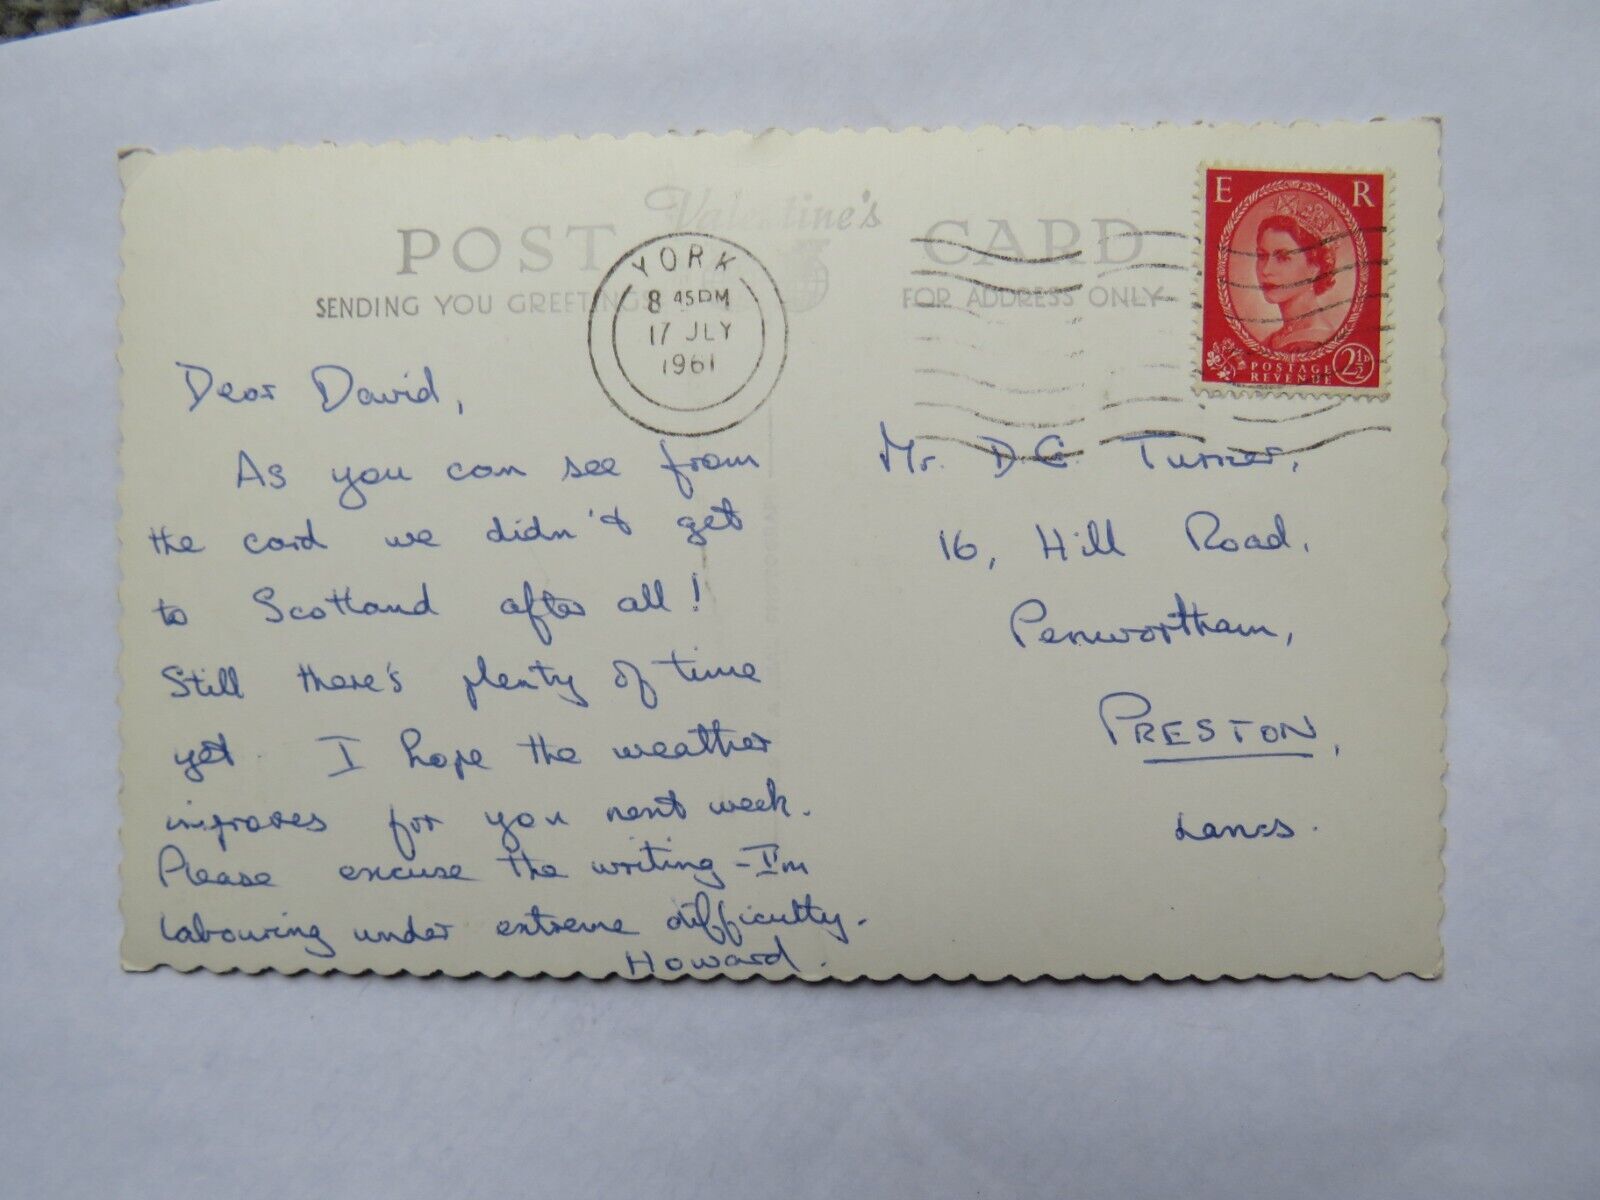 Valentine's
POST CARD
SENDING YOU GREETINGS FOR ADDRESS ONLY
YORK
8 45PM
17 JLY
1961
E R
POSTAGE
REVENUE
2½D
Dear David,
As you can see from
the card we didn't get
to Scotland after all!
Still there's plenty of time
yet. I hope the weather
improves for you next week.
Please excuse the writing - I'm
labouring under extreme difficulty.
Howard.
Mr. D.G. Turner,
16, Hill Road,
Penwortham,
PRESTON,
Lancs.